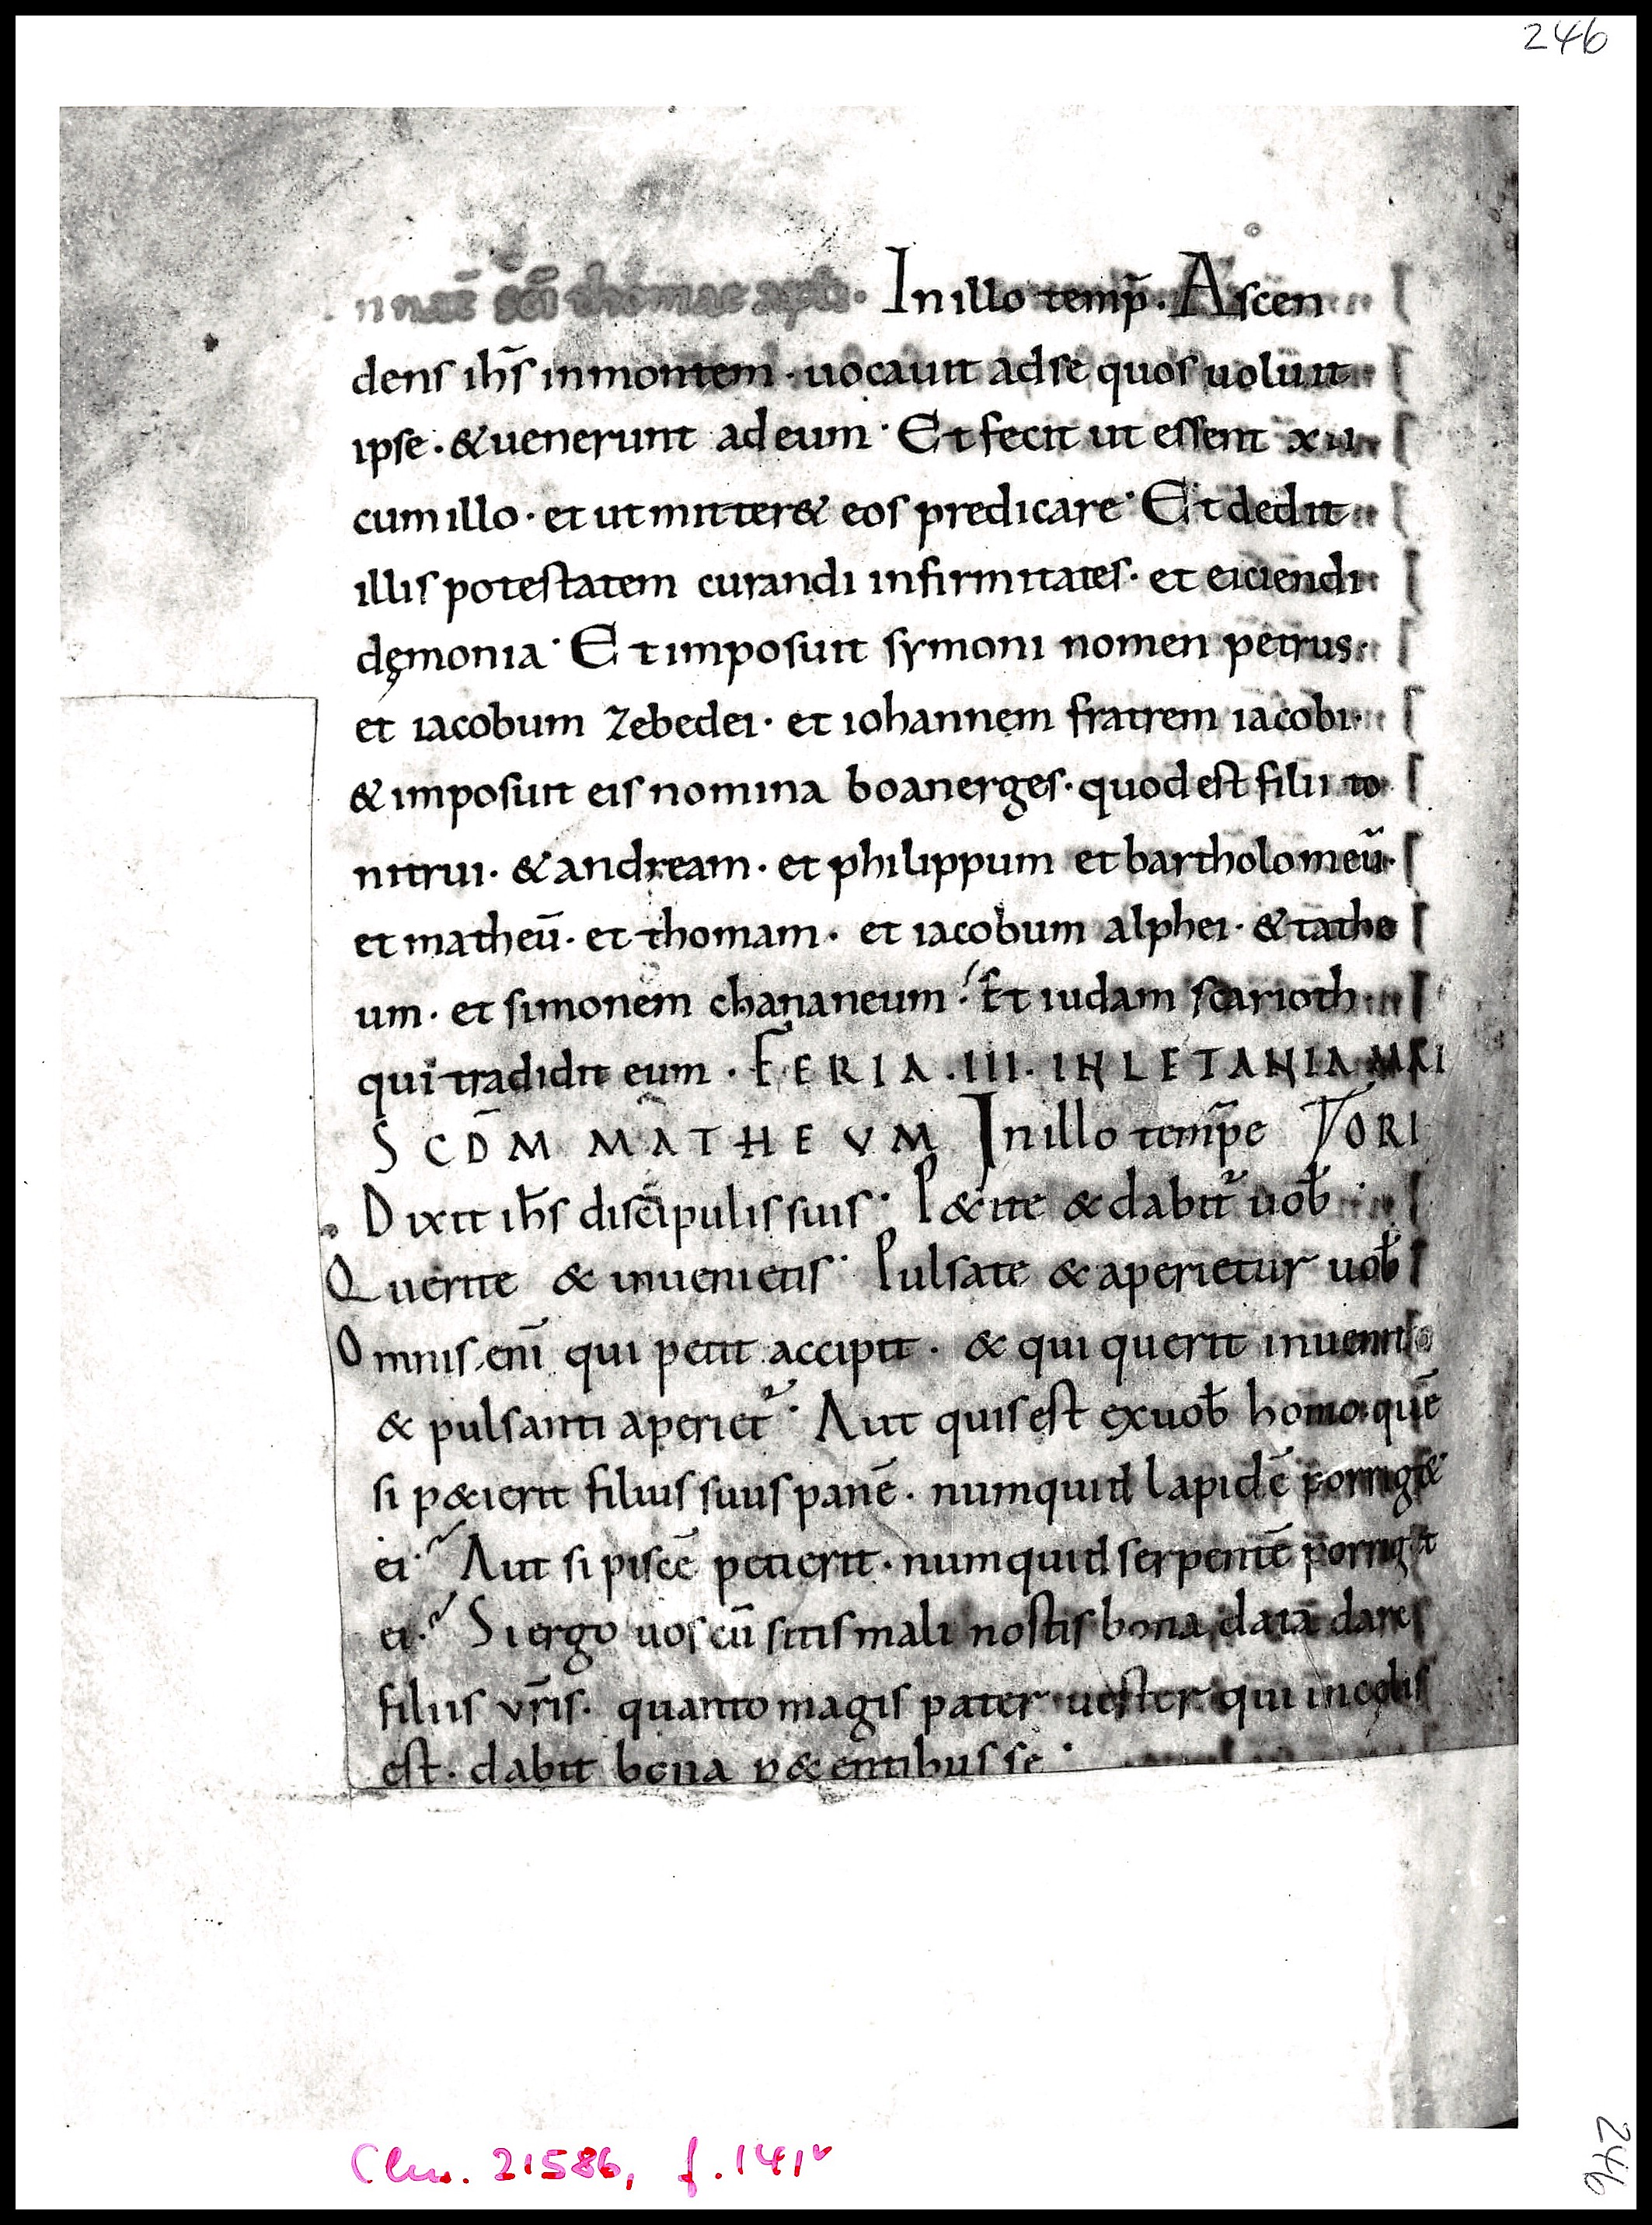 246
In nat̄ sc̄i thomae apłi. In illo temp̄. Ascen
dens ih̄s in montem. uocauit ad se quos uoluit
ipse. & uenerunt ad eum. Et fecit ut essent xii
cum illo. et ut mitter& eos predicare. Et dedit
illis potestatem curandi infirmitates. et eiciendi
dęmonia. Et imposuit symoni nomen petrus.
et iacobum zebedei. et iohannem fratrem iacobi.
& imposuit eis nomina boanerges. quod est filii to
nitrui. & andream. et philippum et bartholomeū.
et matheū. et thomam. et iacobum alphei. & tathe
um. et simonem chananeum. Et iudam scarioth.
qui tradidit eum. FERIA .III. IN LETANIA MAI
SCD̄M MATHEVM In illo temp̄e ORI
Dixit ih̄s discipulis suis. P&ite & dabit̄ uob̄
Querite & inuenietis. Pulsate & aperietur uob̄
Omnis enī qui petit accipit. & qui querit inuenit
& pulsanti aperiet̄. Aut quis est ex uob̄ homo quē
si p&ierit filius suus panē. numquid lapidē porrig&
ei. Aut si piscē petierit. numquid serpentē porrig&
ei. Si ergo uos cū sitis mali nostis bona data dare
filiis vr̄is. quanto magis pater uester qui in cęlis
est. dabit bona p&entibus se.
Clm. 21586, f. 141v
246